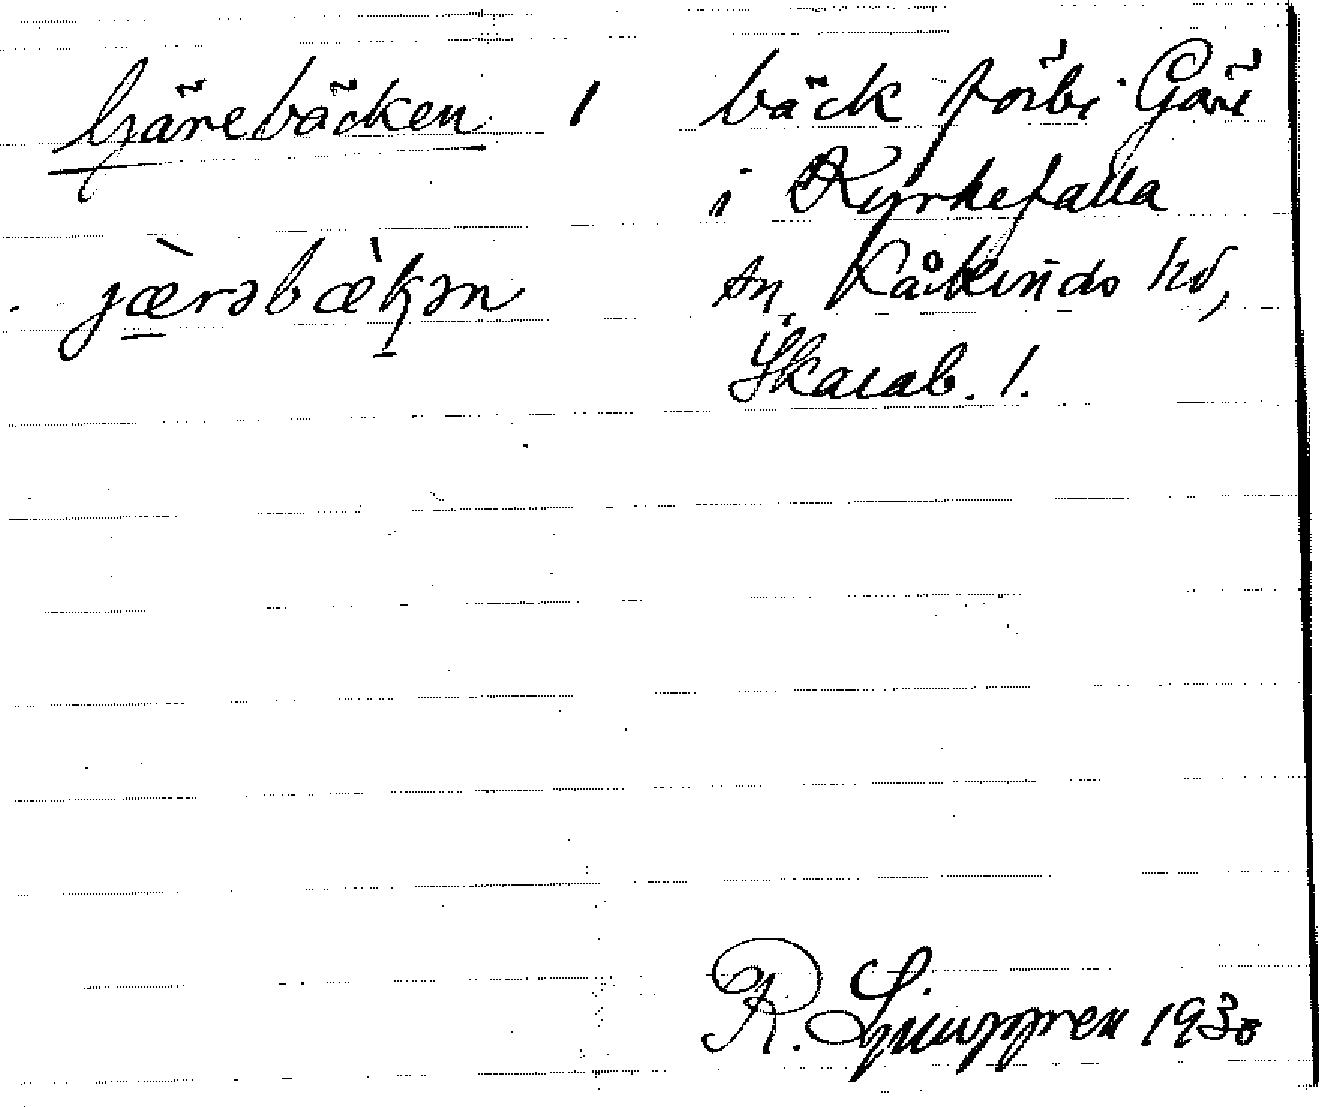 Gärebäcken 1
jæ̀rəbæ̀kən
bäck förbi Gäre
i Kyrkefalla
sn, Kåkinds hd,
Skarab. l.
R. Ljunggren 1930